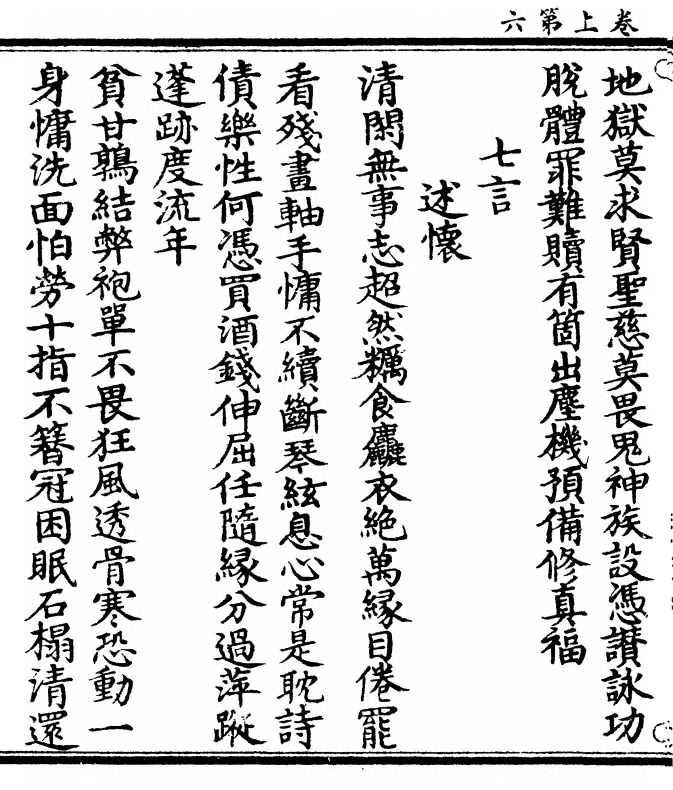 卷上第六
地獄莫求賢聖慈莫畏鬼神族設憑讃詠功
脫體罪難贖有箇出塵機預備修真福
七言
述懷
清閑無事志超然糲食麤衣絶萬緣目倦罷
看殘畫軸手慵不續斷琴絃息心常是耽詩
債樂性何憑買酒錢伸屈任隨緣分過萍蹤
蓬跡度流年
貧甘鶉結弊袍單不畏狂風透骨寒恐動一
身慵洗面怕勞十指不簪冠困眠石榻清還